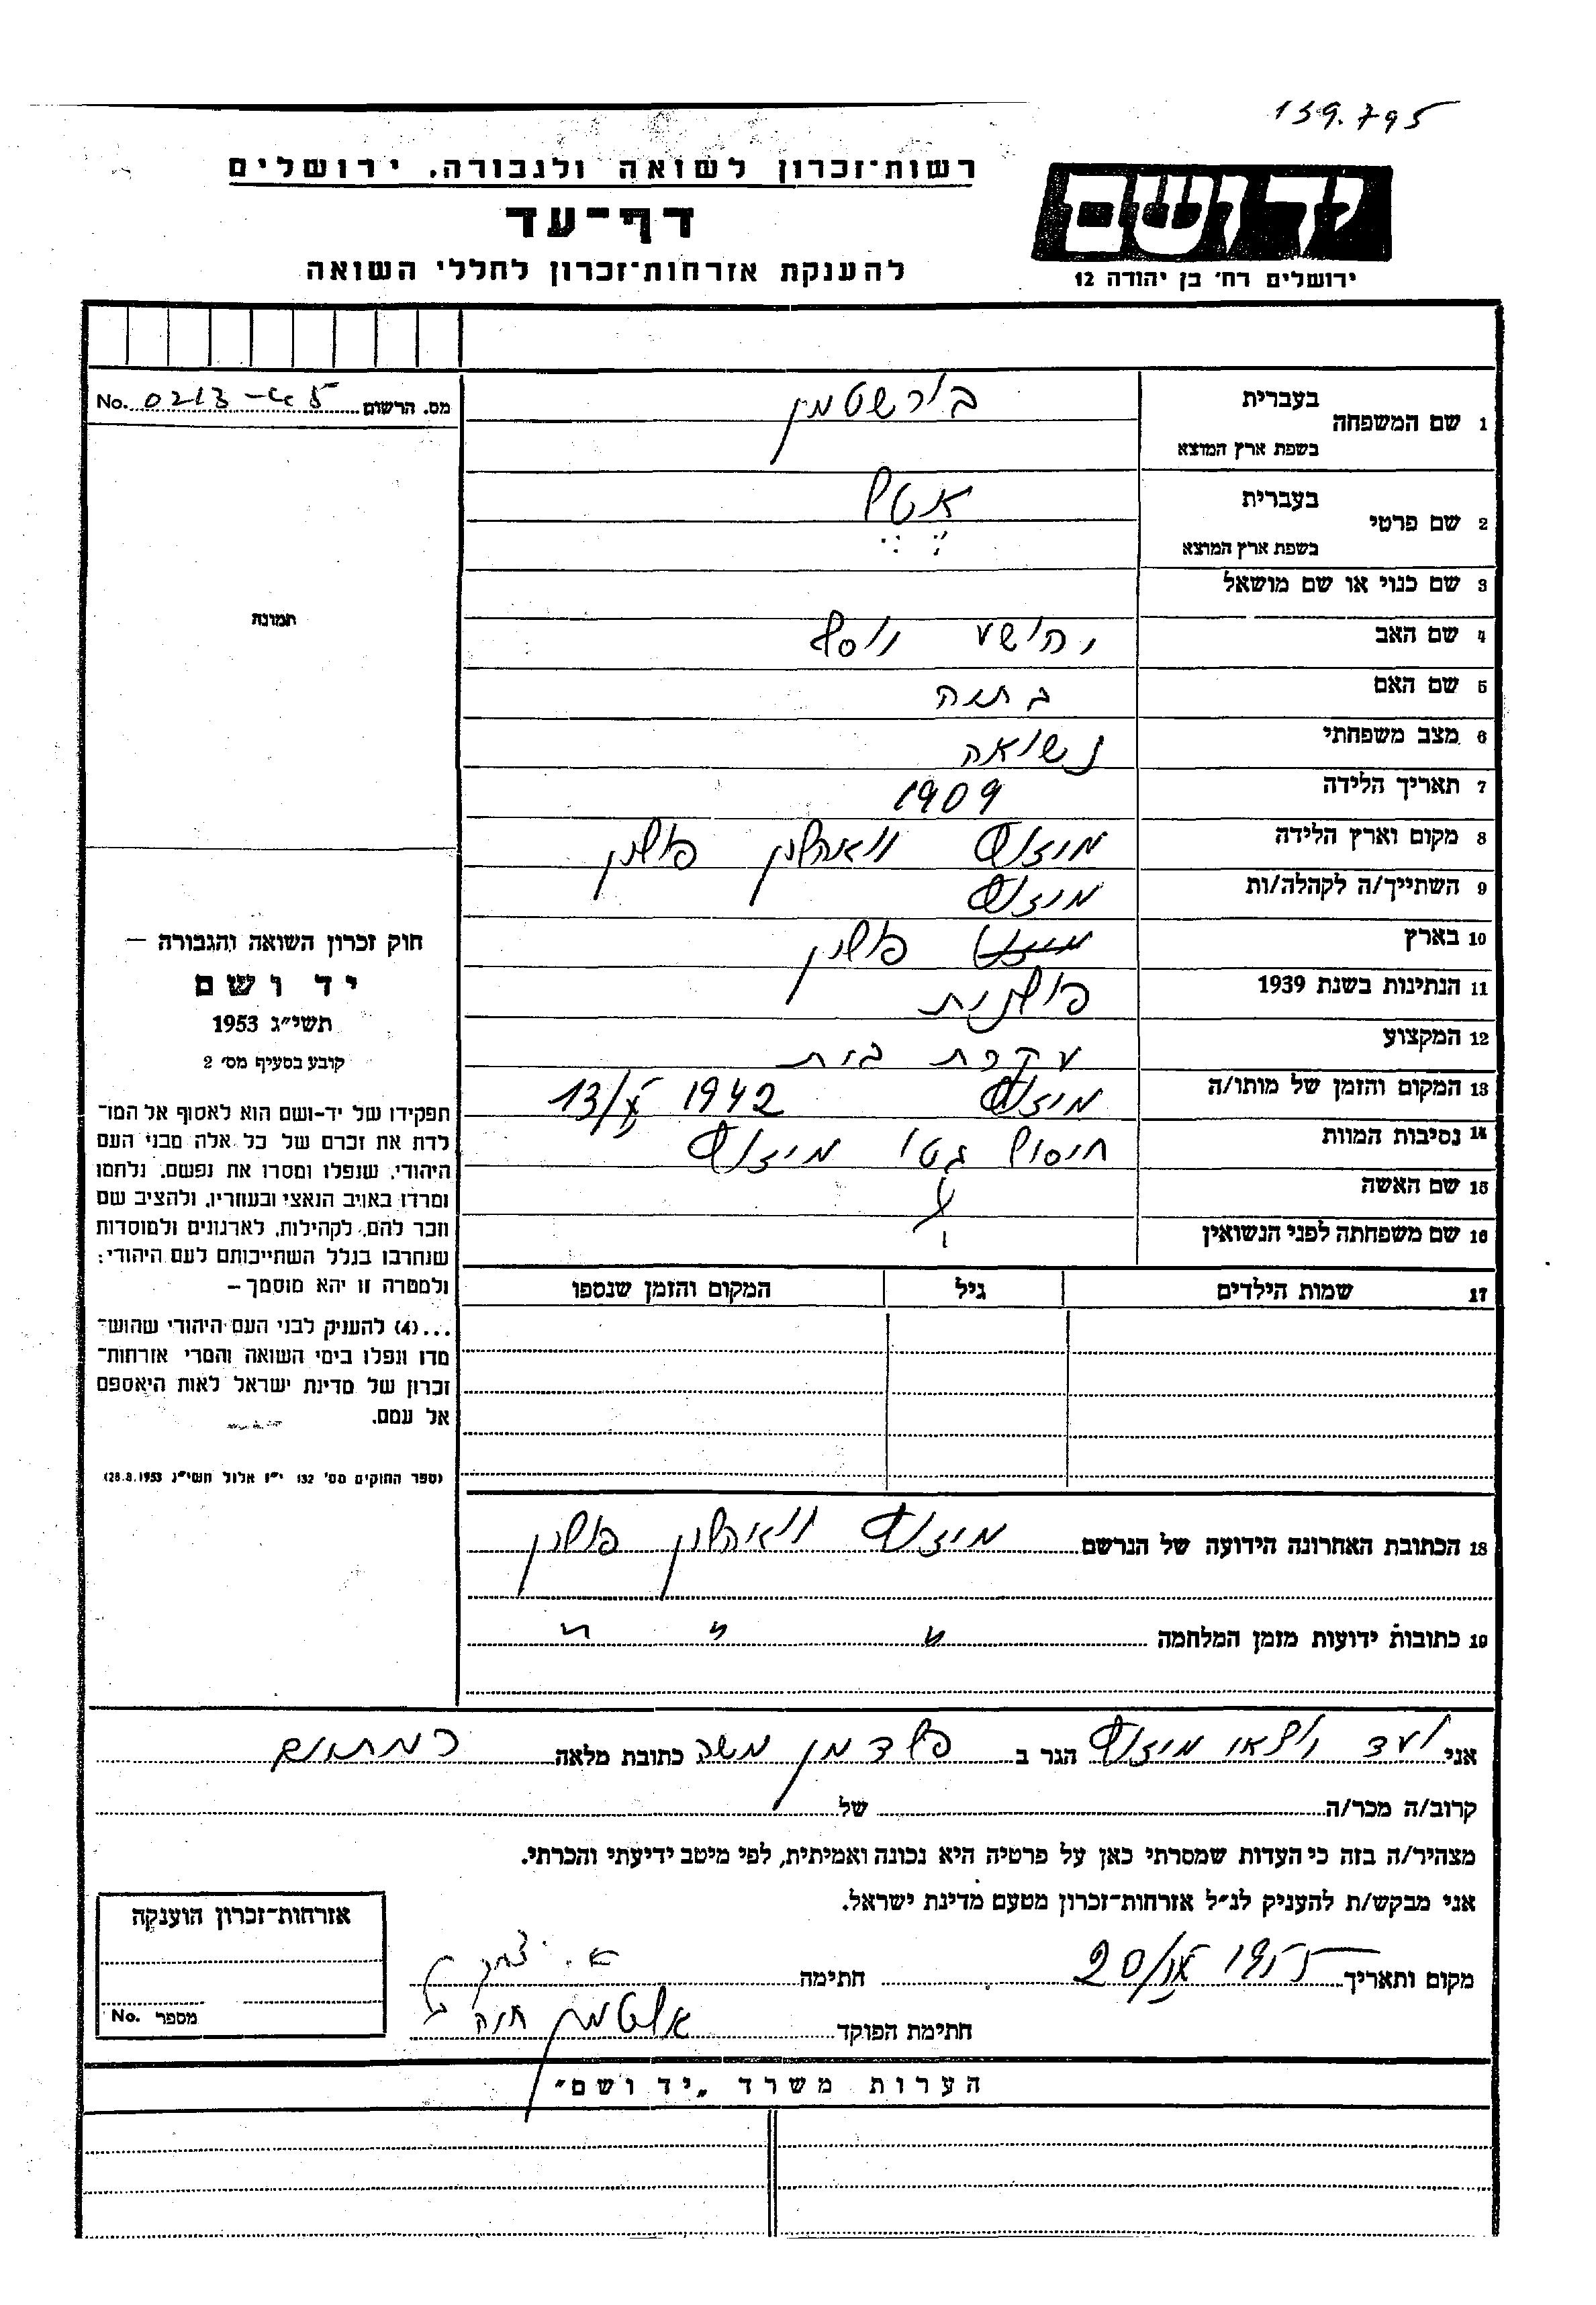 139.795
רשות־זכרון לשואה ולגבורה, ירושלים
דף־עד
להענקת אזרחות־זכרון לחללי השואה
יד ושם
ירושלים רח׳ בן יהודה 12
מס. הרשום No.
1 שם המשפחה בעברית בורשטמן
בשפת ארץ המוצא
2 שם פרטי בעברית אטל
בשפת ארץ המוצא
3 שם כנוי או שם מושאל
4 שם האב יהושע יוסף
5 שם האם
6 מצב משפחתי נשואה
7 תאריך הלידה 1909
8 מקום וארץ הלידה מיזוץ וואהלין פולין
9 השתייך/ה לקהלה/ות מיזוץ
10 בארץ פולין
11 הנתינות בשנת 1939 פולנית
12 המקצוע עקרת בית
13 המקום והזמן של מותו/ה מיזוץ 1942 13/X
14 נסיבות המוות חיסול גטו מיזוץ
15 שם האשה
16 שם משפחתה לפני הנשואין
17 שמות הילדים גיל המקום והזמן שנספו
18 הכתובת האחרונה הידועה של הנרשם מיזוץ וואהלין פולין
19 כתובות ידועות מזמן המלחמה " " "
תמונה
חוק זכרון השואה והגבורה –
יד ושם
תשי״ג 1953
קובע בסעיף מס׳ 2
תפקידו של יד-ושם הוא לאסוף אל המו־
לדת את זכרם של כל אלה מבני העם
היהודי, שנפלו ומסרו את נפשם, נלחמו
ומרדו באויב הנאצי ובעוזריו, ולהציב שם
וזכר להם, לקהילות, לארגונים ולמוסדות
שנחרבו בגלל השתייכותם לעם היהודי;
ולמטרה זו יהא מוסמך –
...(4) להעניק לבני העם היהודי שהוש־
מדו ונפלו בימי השואה והמרי אזרחות־
זכרון של מדינת ישראל לאות היאספם
אל עמם.
(ספר החוקים מס׳ 132 י״ז אלול תשי״ג 28.8.1953)
אני ועד יוצאי מיזוץ הגר ב פלדמן משה כתובת מלאה
קרוב/ה מכר/ה של
מצהיר/ה בזה כי העדות שמסרתי כאן על פרטיה היא נכונה ואמיתית, לפי מיטב ידיעתי והכרתי.
אני מבקש/ת להעניק לנ״ל אזרחות־זכרון מטעם מדינת ישראל.
מקום ותאריך 1955 חתימה
חתימת הפוקד אלטמן חוה
אזרחות־זכרון הוענקה
מספר No.
הערות משרד „יד ושם״